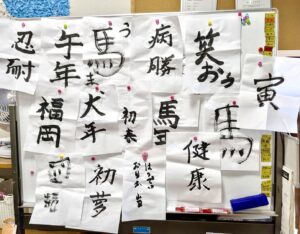 忍耐
午年
馬
病
勝
笑おう
寅
福岡
犬年
初春
馬
馬
健康
初夢